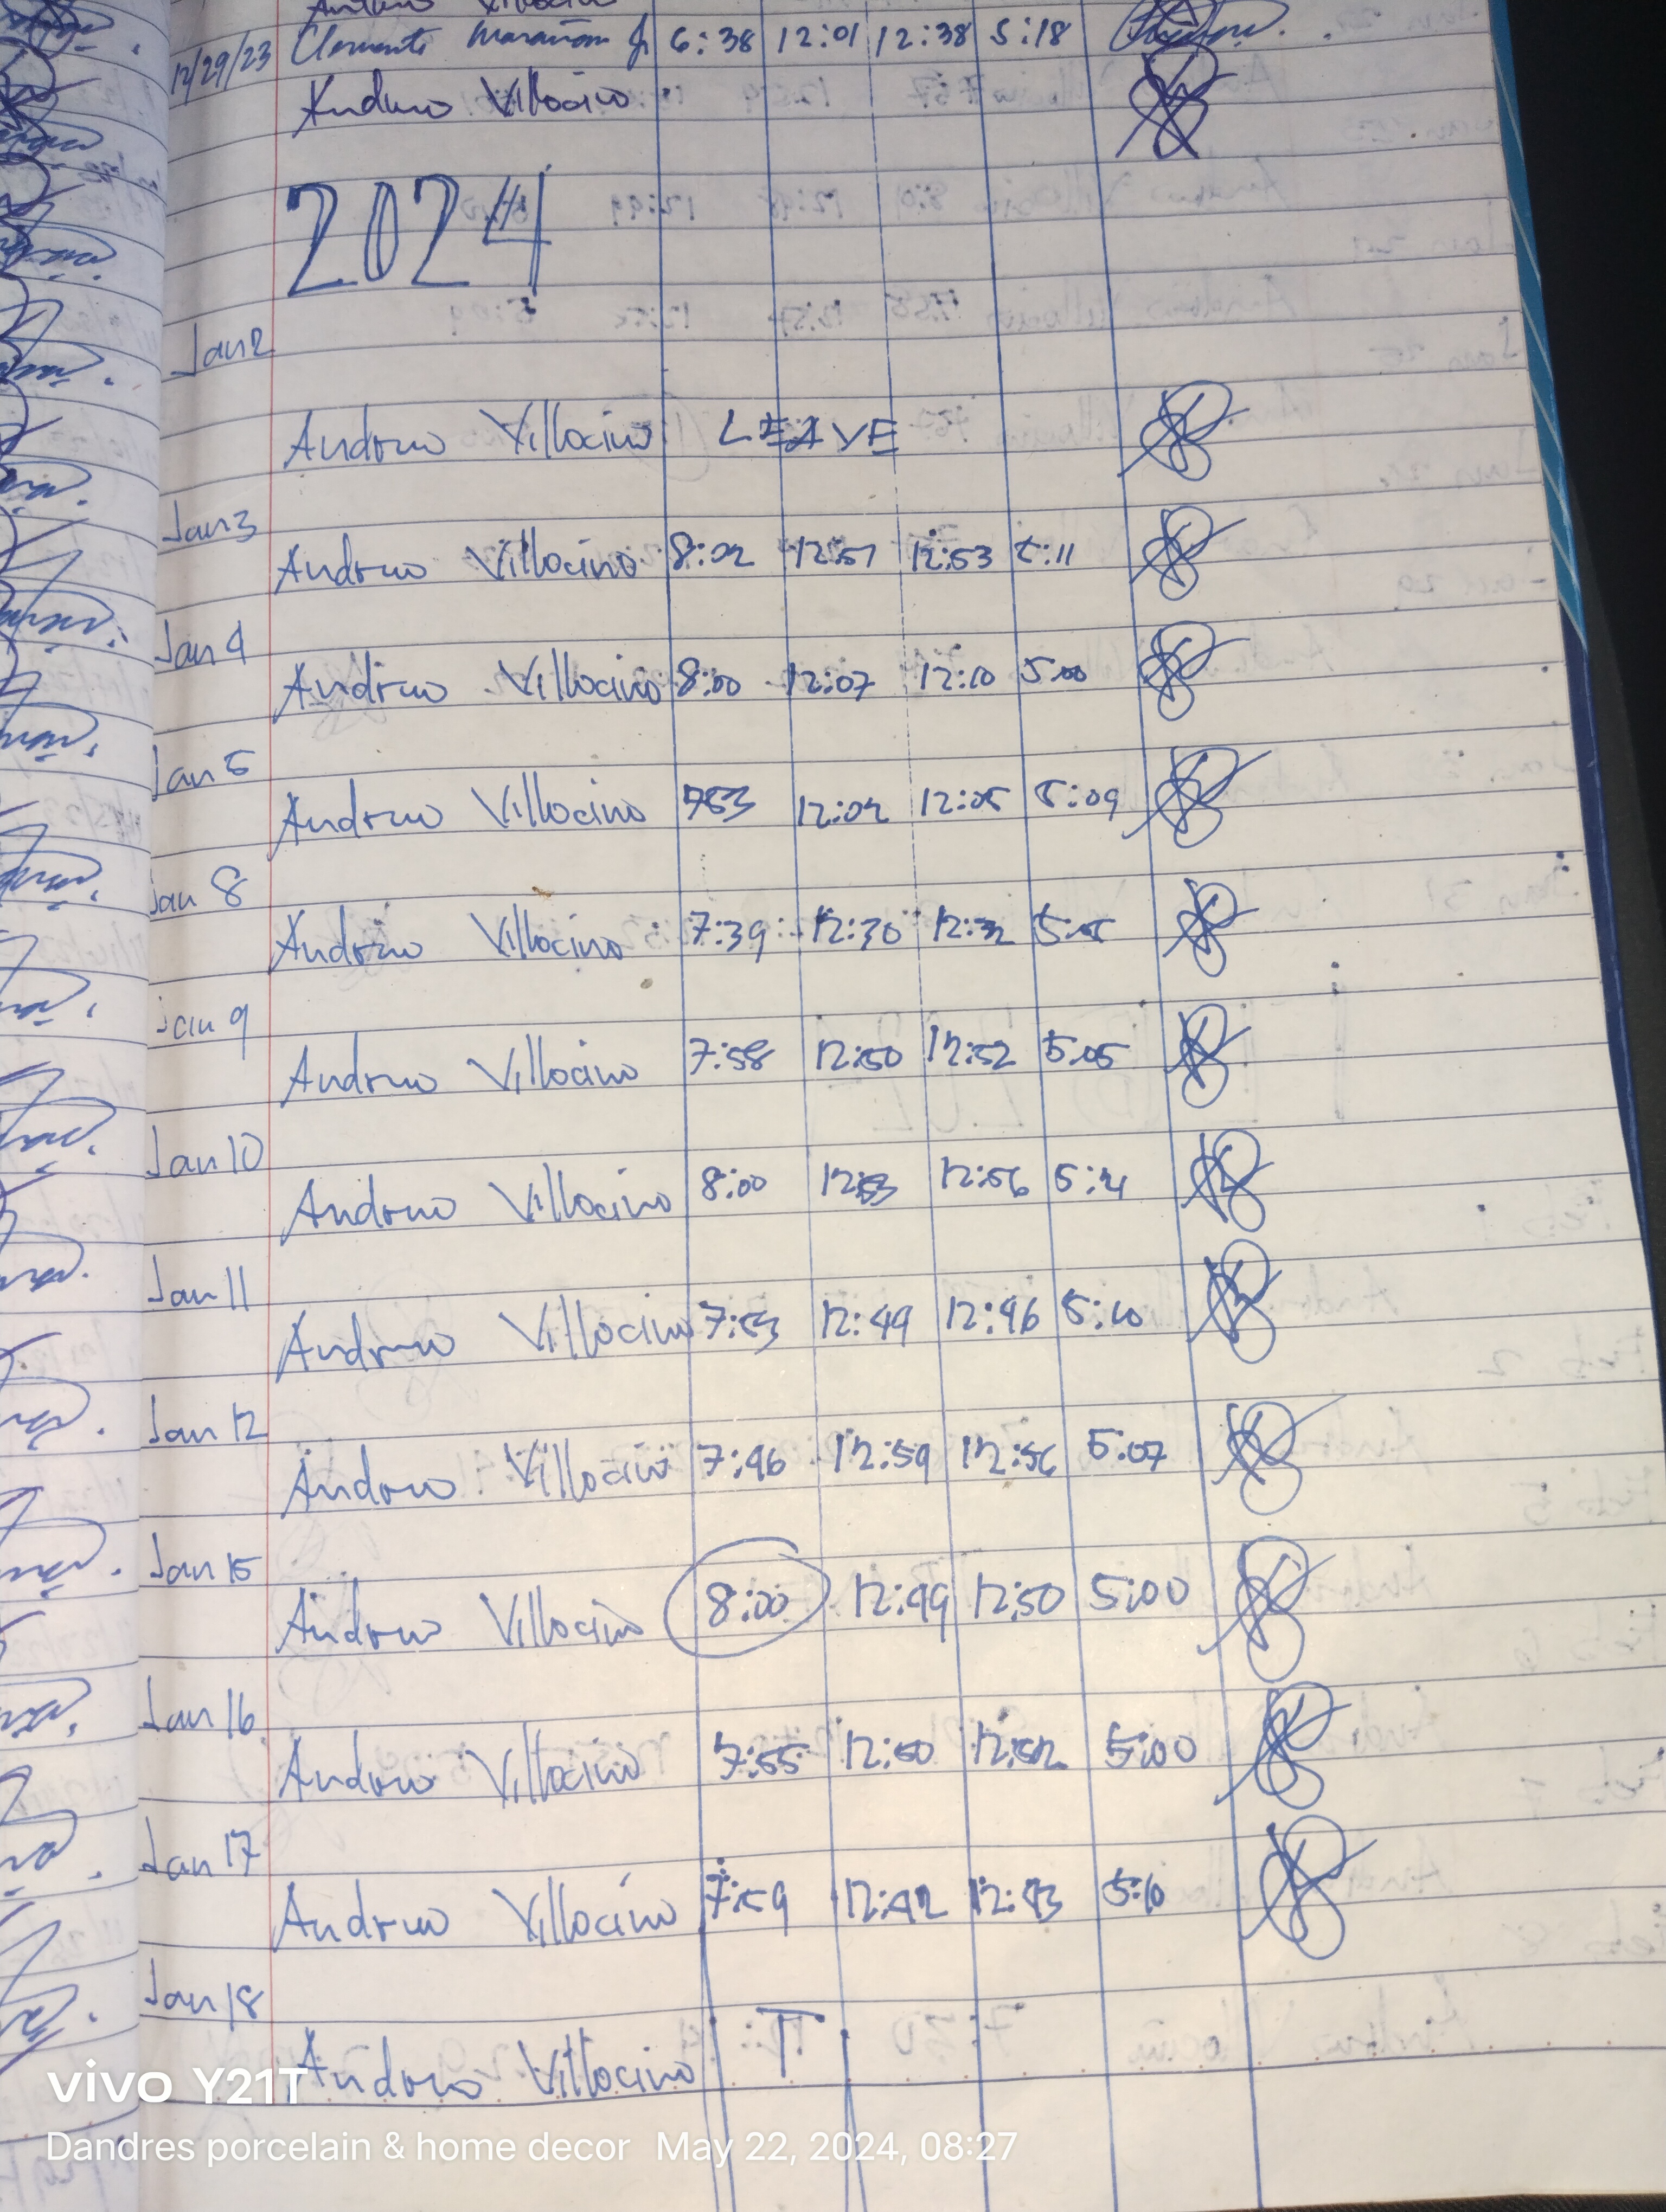 12/29/23 Clemente Marañon Jr 6:38 12:01 12:38 5:18
Andrno Villocino
2024
Jan 2
Andrno Villocino LEAVE
Jan 3
Andrno Villocino 8:02 12:51 12:53 5:11
Jan 4
Andrno Villocino 8:00 12:07 12:10 5:00
Jan 5
Andrno Villocino 753 12:02 12:05 5:09
Jan 8
Andrno Villocino 7:39 12:30 12:32 5:05
Jan 9
Andrno Villocino 7:58 12:50 12:52 5:05
Jan 10
Andrno Villocino 8:00 12:53 12:56
Jan 11
Andrno Villocino 7:53 12:44 12:46 5:10
Jan 12
Andrno Villocino 7:46 12:54 12:56 5:07
Jan 15
Andrno Villocino 8:00 12:49 12:50 5:00
Jan 16
Andrno Villocino 7:55 12:50 12:52 5:00
Jan 17
Andrno Villocino 7:59 12:42 12:43 5:10
Jan 18
Andrno Villocino T
vivo Y21T
Dandres porcelain & home decor May 22, 2024, 08:27